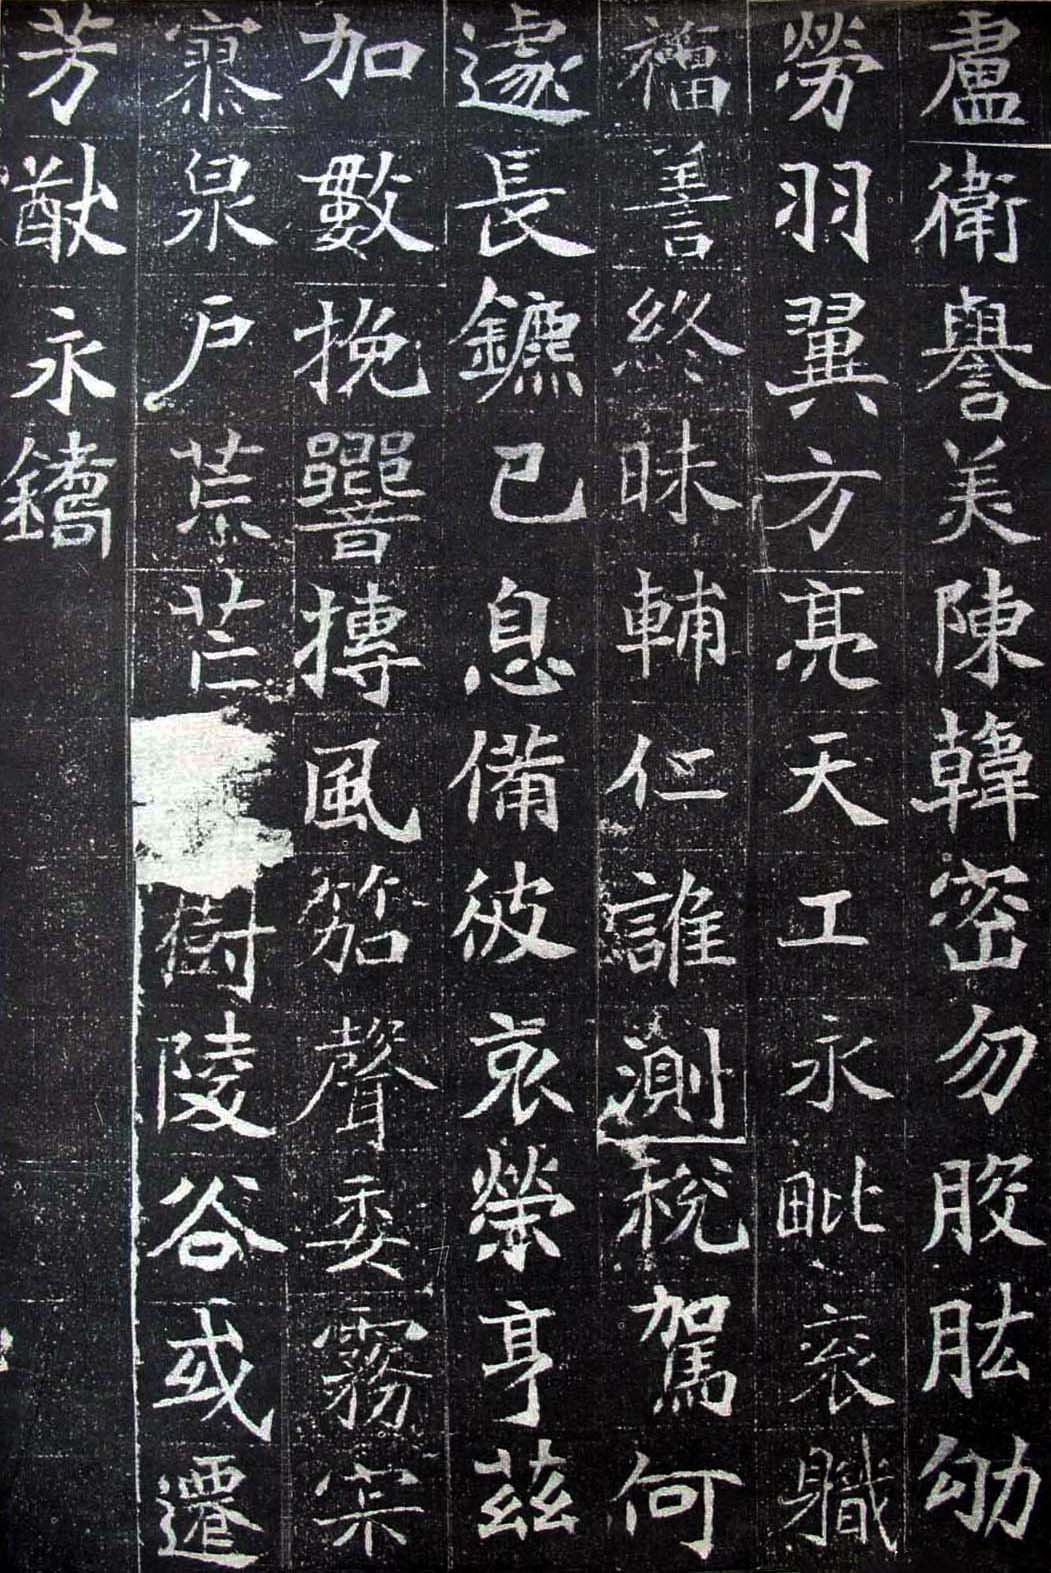 盧衛譽美陳韓密勿股肱劬
勞羽翼方亮天工永毗袞職
福善終昧輔仁誰測稅駕何
遽長鑣已息備彼哀榮享茲
加數挽響摶風笳聲委霧寂
寥泉戶荒芒樹陵谷或遷
芳猷永鐫